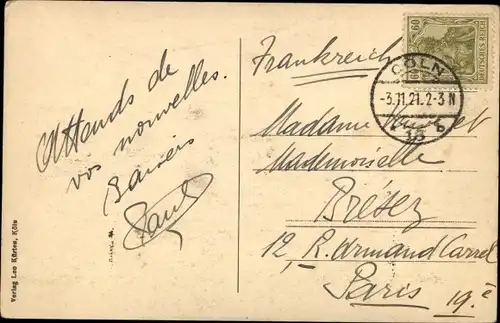 Attends de
vos nouvelles.
Baisers
Paul
Verlag Leo Küsten, Köln
Frankreich
60
DEUTSCHES REICH
CÖLN
-3.11.21.2-3 N
* 15 b
Madame
Mademoiselle
Brésez
12, R. Armand Carrel
Paris 19.e